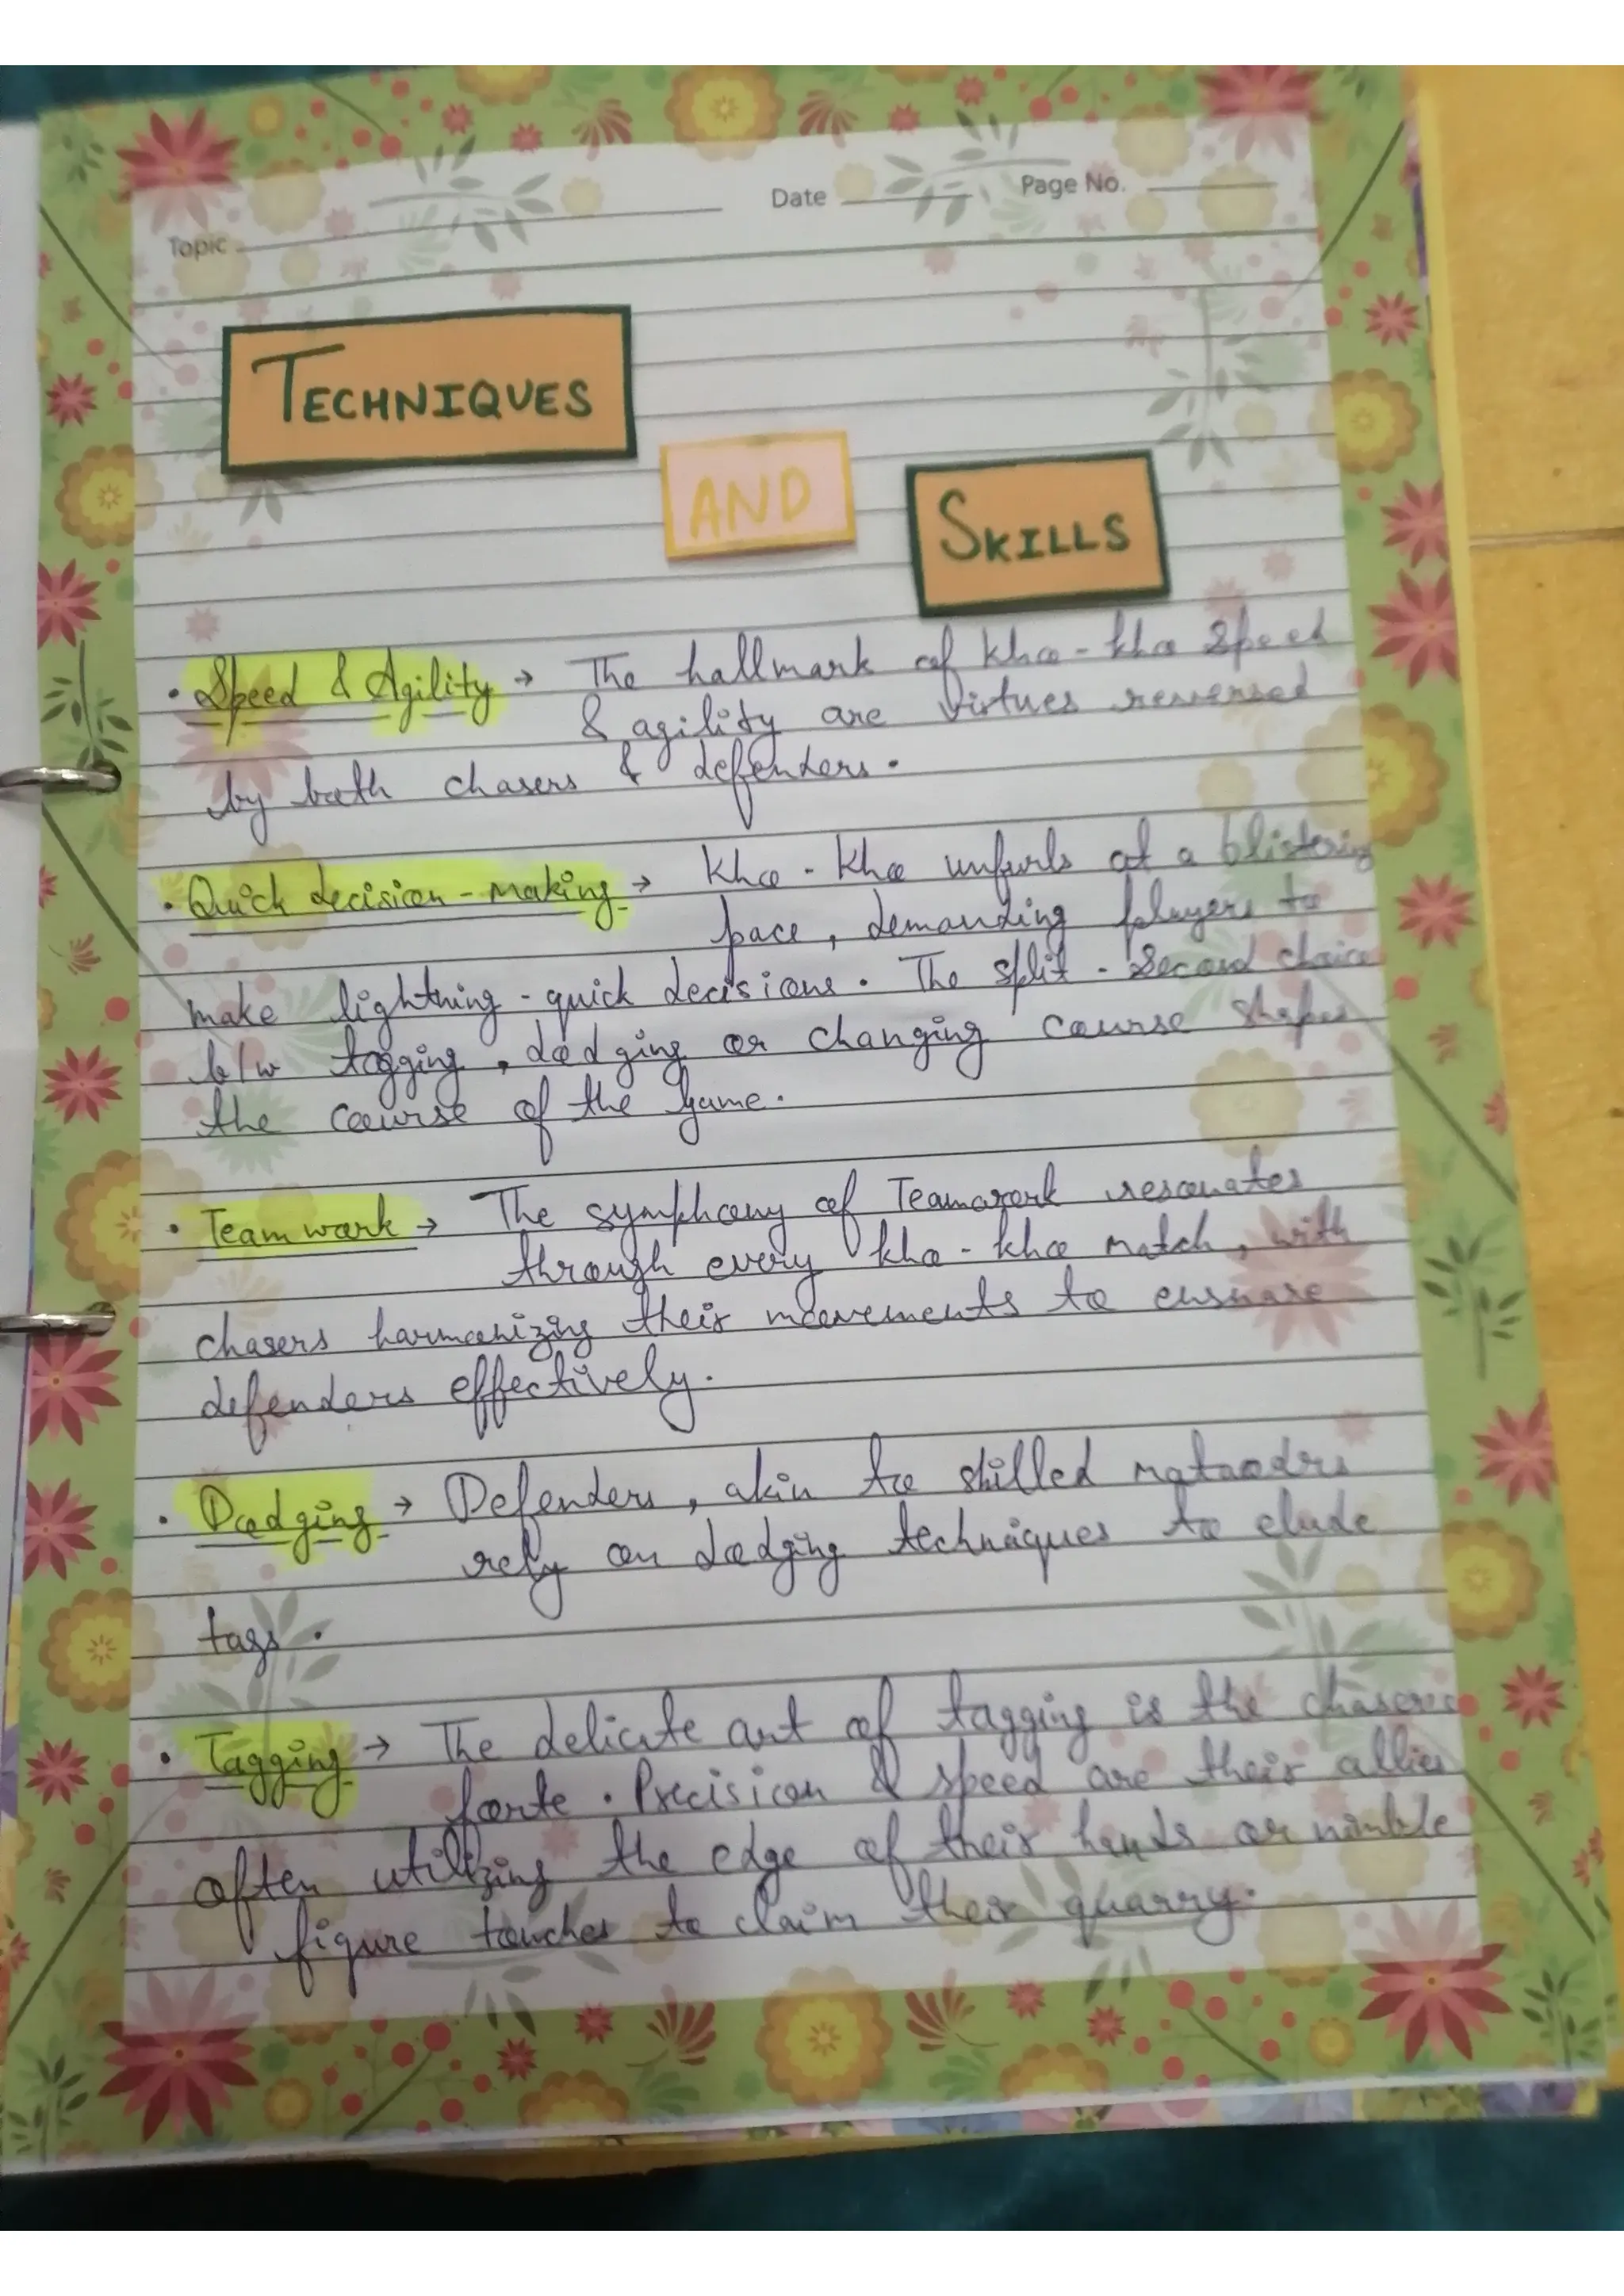 Topic Date Page No.
TECHNIQUES
AND
SKILLS
• Speed & Agility → The hallmark of kho-kho Speed
& agility are virtues reversed
by both chasers & defenders.
• Quick decision-making → Kho-Kho unfurls at a blistering
pace, demanding players to
make lightning-quick decisions. The split-second choice
b/w tagging, dodging or changing course shapes
the course of the game.
• Team work → The symphony of Teamwork resonates
through every kho-kho match, with
chasers harmonizing their movements to ensnare
defenders effectively.
• Dodging → Defenders, akin to skilled
rely on dodging techniques to elude
tags.
• Tagging → The delicate art of tagging is the
forte. Precision & speed are their allies
often utilizing the edge of their hands or nimble
figure touches to claim their quarry.